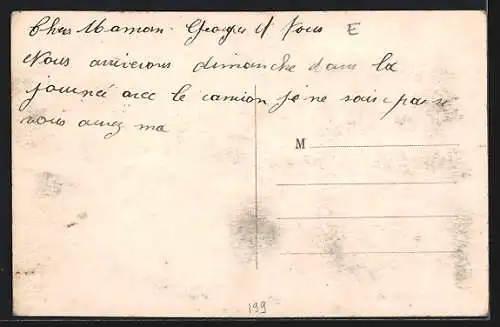 Chers Maman. Georges et Vous E
Nous arriverons dimanche dans la
journée avec le camion je ne sais pas si
vous avez ma
M
199